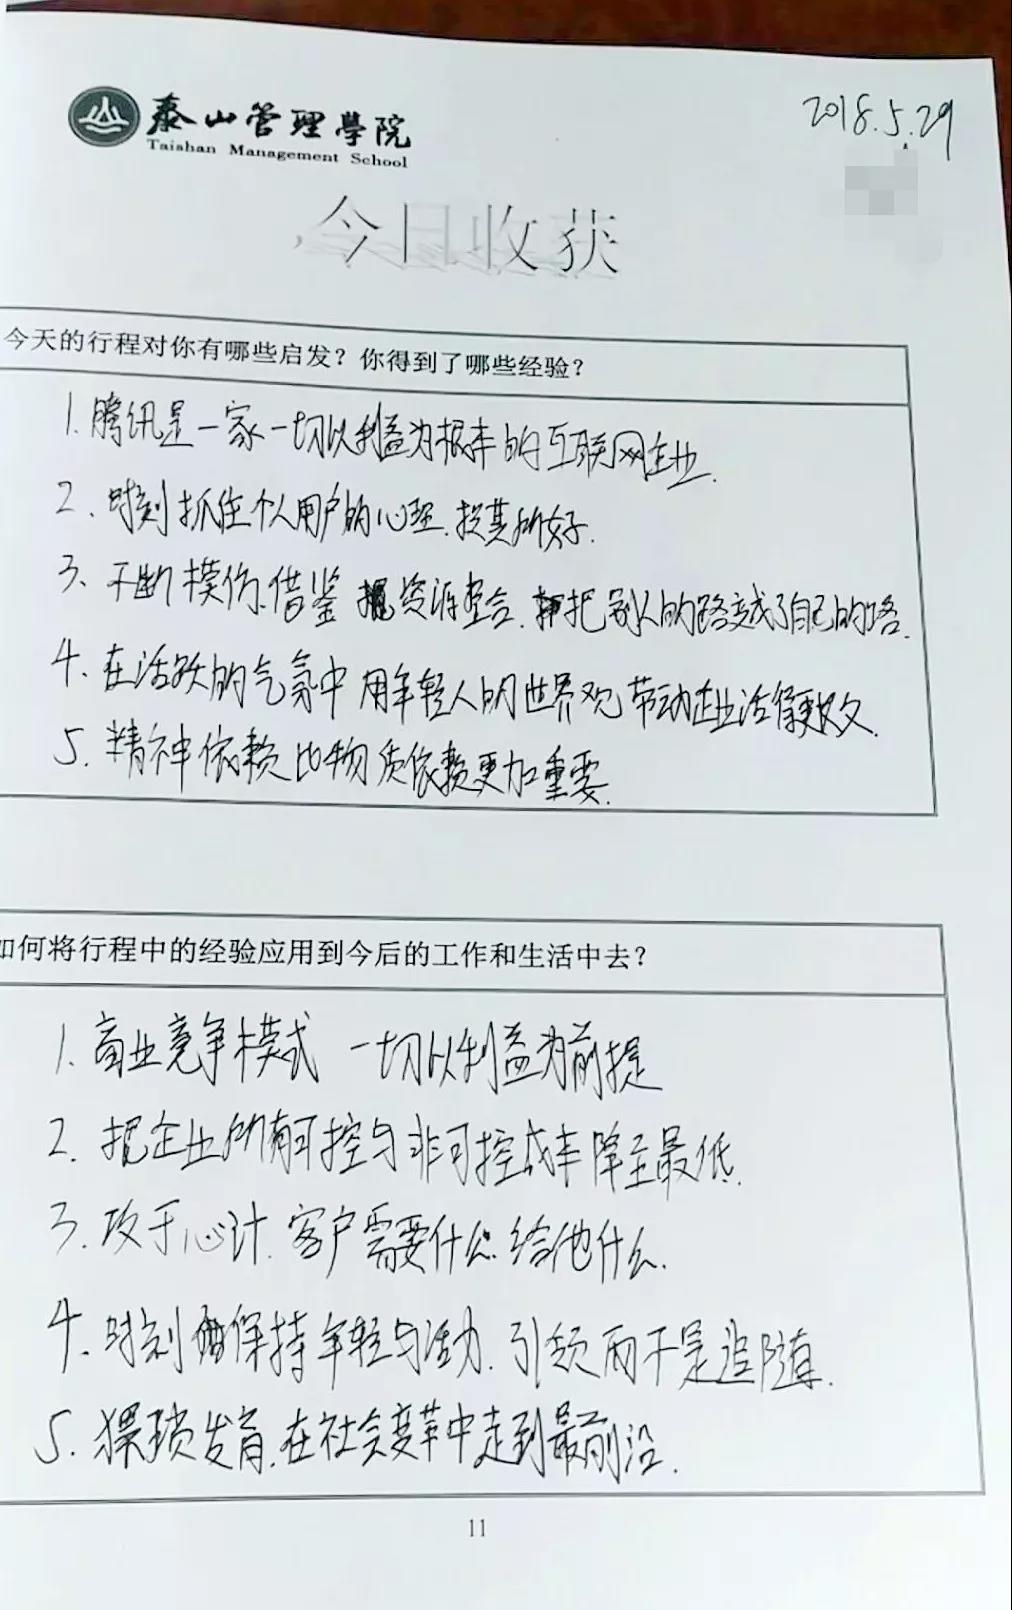 泰山管理學院
Taishan Management School
2018.5.29
今日收获
今天的行程对你有哪些启发？你得到了哪些经验？
1. 腾讯是一家一切以利益为根本的互联网企业.
2. 时刻抓住个人用户的心理.投其所好.
3. 不断模仿.借鉴 资源整合.把别人的路变成了自己的路.
4. 在活跃的气氛中用年轻人的世界观带动企业活得更久.
5. 精神依赖比物质依赖更加重要.
如何将行程中的经验应用到今后的工作和生活中去？
1. 商业竞争模式 一切以利益为前提
2. 把企业所有可控与非可控成本降至最低.
3. 攻于心计.客户需要什么给他什么.
4. 时刻保持年轻与活力.引领而不是追随.
5. 猥琐发育.在社会变革中走到最前沿.
11